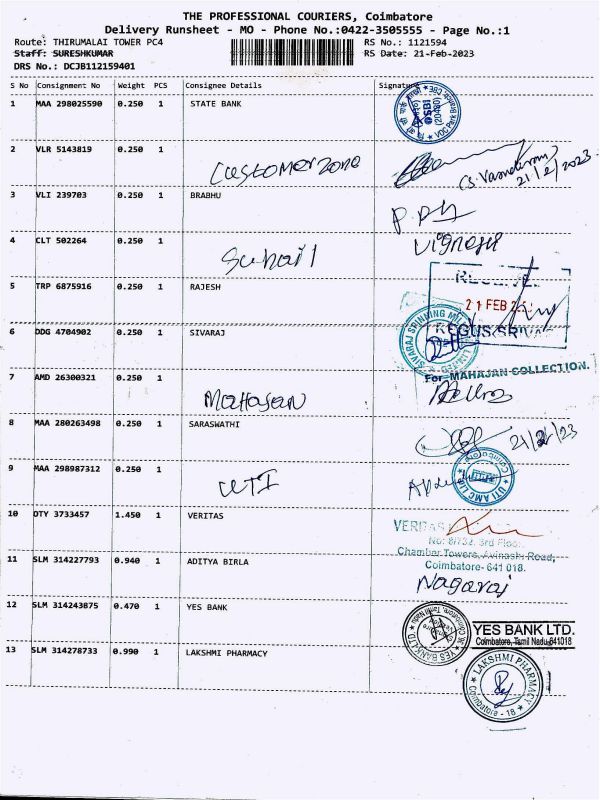 THE PROFESSIONAL COURIERS, Coimbatore
Delivery Runsheet - MO - Phone No.:0422-3505555 - Page No.:1
Route: THIRUMALAI TOWER PC4 RS No.: 1121594
Staff: SURESHKUMAR RS Date: 21-Feb-2023
DRS No.: DCJB112159401
S No Consignment No Weight PCS Consignee Details Signature
1 MAA 298025590 0.250 1 STATE BANK
SBI
(20490)
VOC Park Branch
2 VLR 5143819 0.250 1
Customer zone
21/2/2023
3 VLI 239703 0.250 1 BRABHU
4 CLT 502264 0.250 1
Suhail
Vignesh
5 TRP 6875916 0.250 1 RAJESH
21 FEB
6 DDG 4704902 0.250 1 SIVARAJ
SIVARAJ SPINNING MILLS
LIMITED
7 AMD 26300321 0.250 1
Mahajan
For MAHAJAN COLLECTION.
8 MAA 280263498 0.250 1 SARASWATHI
21/2/23
9 MAA 298987312 0.250 1
UTI
UTI AMC
Coimbatore
10 DTY 3733457 1.450 1 VERITAS
VERITAS
No: 8/732, 3rd Floor,
Chamber Towers, Avinashi Road,
Coimbatore- 641 018.
11 SLM 314227793 0.940 1 ADITYA BIRLA
Nagaraj
12 SLM 314243875 0.470 1 YES BANK
YES BANK LTD.
YES BANK LTD.
Coimbatore, Tamil Nadu-641018
13 SLM 314278733 0.990 1 LAKSHMI PHARMACY
LAKSHMI PHARMACY
Coimbatore - 18